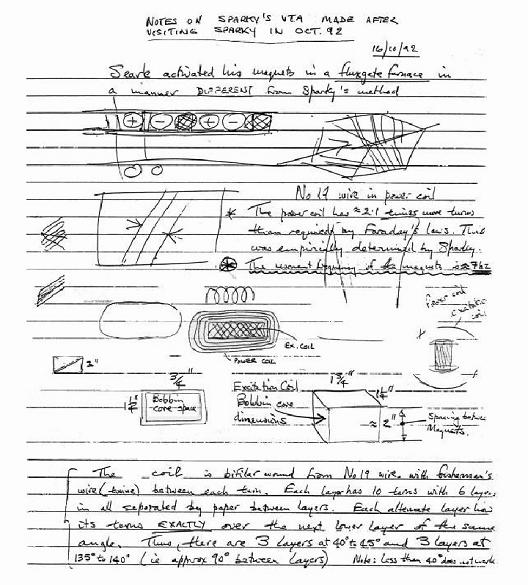 NOTES ON SPARKY'S VTA MADE AFTER
VISITING SPARKY IN OCT. 92
16/10/92
Searle activated his magnets in a fluxgate furnace in
a manner DIFFERENT from Sparky's method
+ - + -
No 19 wire in power coil
* The power coil has ≈ 2.1 times more turns
than required by Faraday's laws. This
was empirically determined by Sparky.
* The moment frequency of the magnets is
Power coil
Excitation
coil
Ex. coil
POWER COIL
1"
3/4"
1 1/4"
Bobbin
core space
Excitation Coil
Bobbin core
dimensions
1 3/4"
1/4"
≈ 2"
Spacing between
Magnets.
The coil is bifilar wound from No 19 wire with fisherman's
wire (twine) between each turn. Each layer has 10 turns with 6 layers
in all separated by paper between layers. Each alternate layer has
its turns EXACTLY over the next lower layer of the same
angle. Thus, there are 3 layers at 40° to 45° and 3 layers at
135° to 140° (ie approx 90° between layers) Note: less than 40° does not work